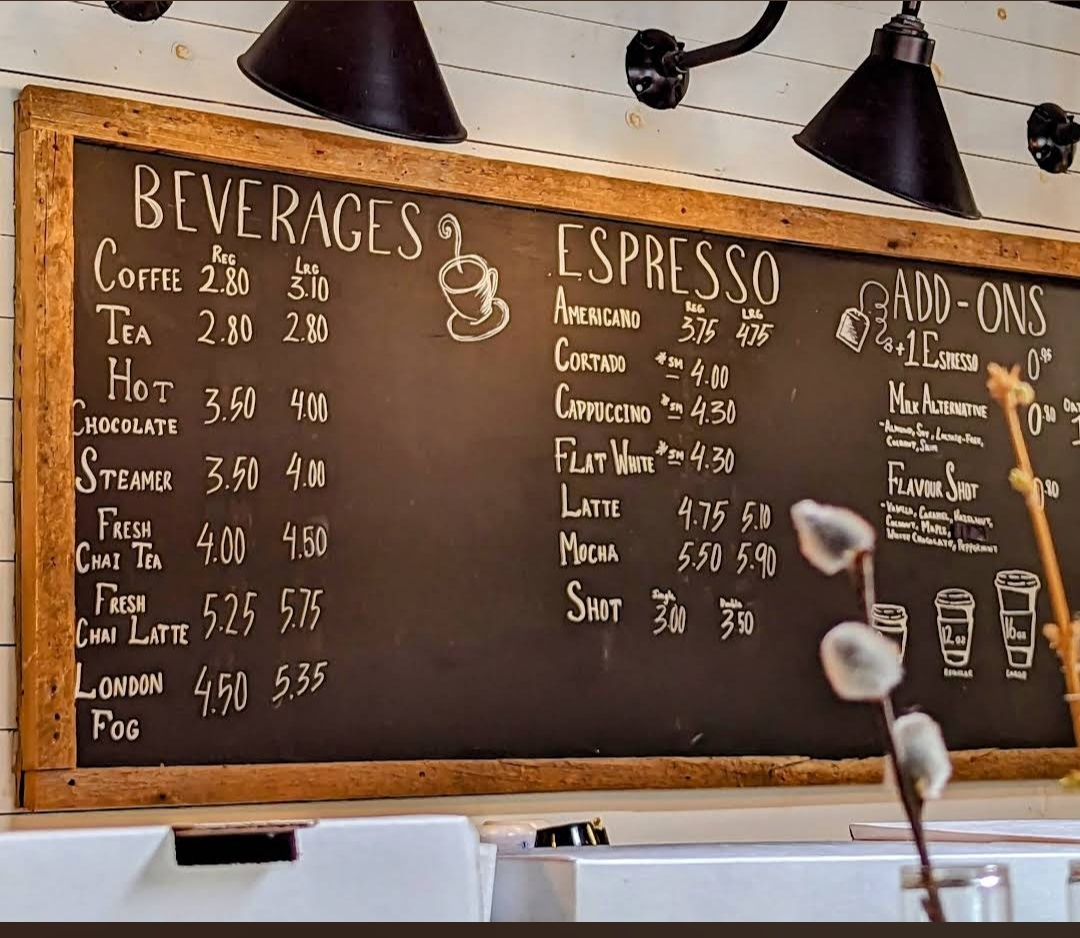 BEVERAGES
REG LRG
COFFEE 2.80 3.10
TEA 2.80 2.80
HOT
CHOCOLATE 3.50 4.00
STEAMER 3.50 4.00
FRESH
CHAI TEA 4.00 4.50
FRESH
CHAI LATTE 5.25 5.75
LONDON 4.50 5.35
FOG
ESPRESSO
REG LRG
AMERICANO 3.75 4.75
CORTADO *SM 4.00
CAPPUCCINO *SM 4.30
FLAT WHITE *SM 4.30
LATTE 4.75 5.10
MOCHA 5.50 5.90
Single Double
SHOT 3.00 3.50
ADD-ONS
+1 ESPRESSO 0.95
MILK ALTERNATIVE 0.80
-ALMOND, SOY, LACTOSE-FREE,
COCONUT, SKIM
FLAVOUR SHOT
-VANILLA, CARAMEL, HAZELNUT,
COCONUT, MAPLE,
WHITE CHOCOLATE, PEPPERMINT
12 oz 16 oz
REGULAR LARGE